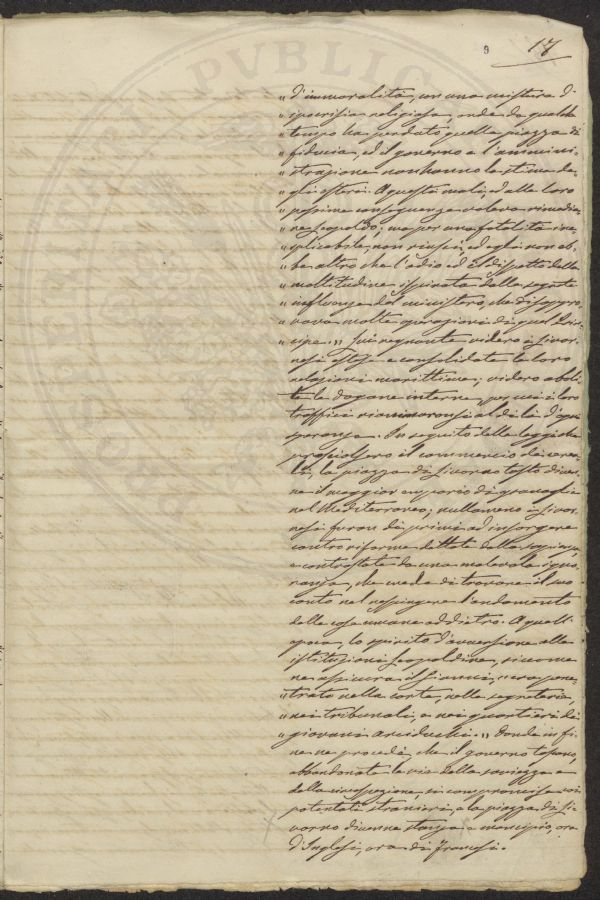 9 17
" d'immoralità, con una mistura d'
" ipocrisia religiosa, onde da qualche
" tempo ha perduto quella piazza di
" fiducia, ed il governo e l'ammini-
" strazione non hanno la stima de-
" gli esteri. A questi mali, ed alle loro
" pessime conseguenze voleva rimedia-
" re Leopoldo; ma per una fatalità ine-
" splicabile, non riuscì, ed egli non eb-
" be altro che l'odio ed il dispetto della
" moltitudine ispirata dalla segreta
" influenza del ministero, che disappro-
" vava molte operazioni di quel Prin-
" cipe. " Lui regnante videro i Livor-
nesi estese e consolidate le loro
relazioni marittime; videro aboli-
te le dogane interne, per cui i loro
traffici rianimaronsi al di là d'ogni
speranza. In seguito delle leggi che
prosciolsero il commercio dei cerea-
li, la piazza di Livorno tosto diven-
ne il maggior emporio di granaglie
nel Mediterraneo; nullameno i Livor-
nesi furon di primi ad insorgere
contro riforme dettate dalla sapienza
e contrastate da una malevola igno-
ranza, che crede di trovare il suo
conto nel respingere l'andamento
delle cose umane addietro. A quell'
epoca, lo spirito d'avversione alle
istituzioni Leopoldine, siccome
ne assicura il Gianni, " era pene-
" trato nella corte, nelle segreterie,
" nei tribunali, e nei quartieri di
" giovani arciduchi. " Donde in fi-
ne ne procedè, che il governo toscano,
abbandonata la via della saviezza e
della circospezione, si compromise coi
potentati stranieri, e la piazza di Li-
vorno divenne stanza e mancipio, ora
d'Inglesi, ora di Francesi.